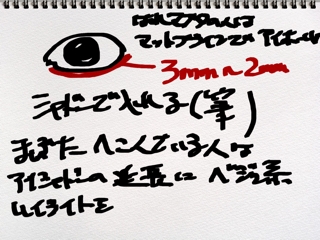 マットブラウンで アイホール
3mm〜2mm
シャドーで入れる(筆)
まぶた へこんでいる人は
アイシャドーの 延長に ベージュ系
ハイライトを